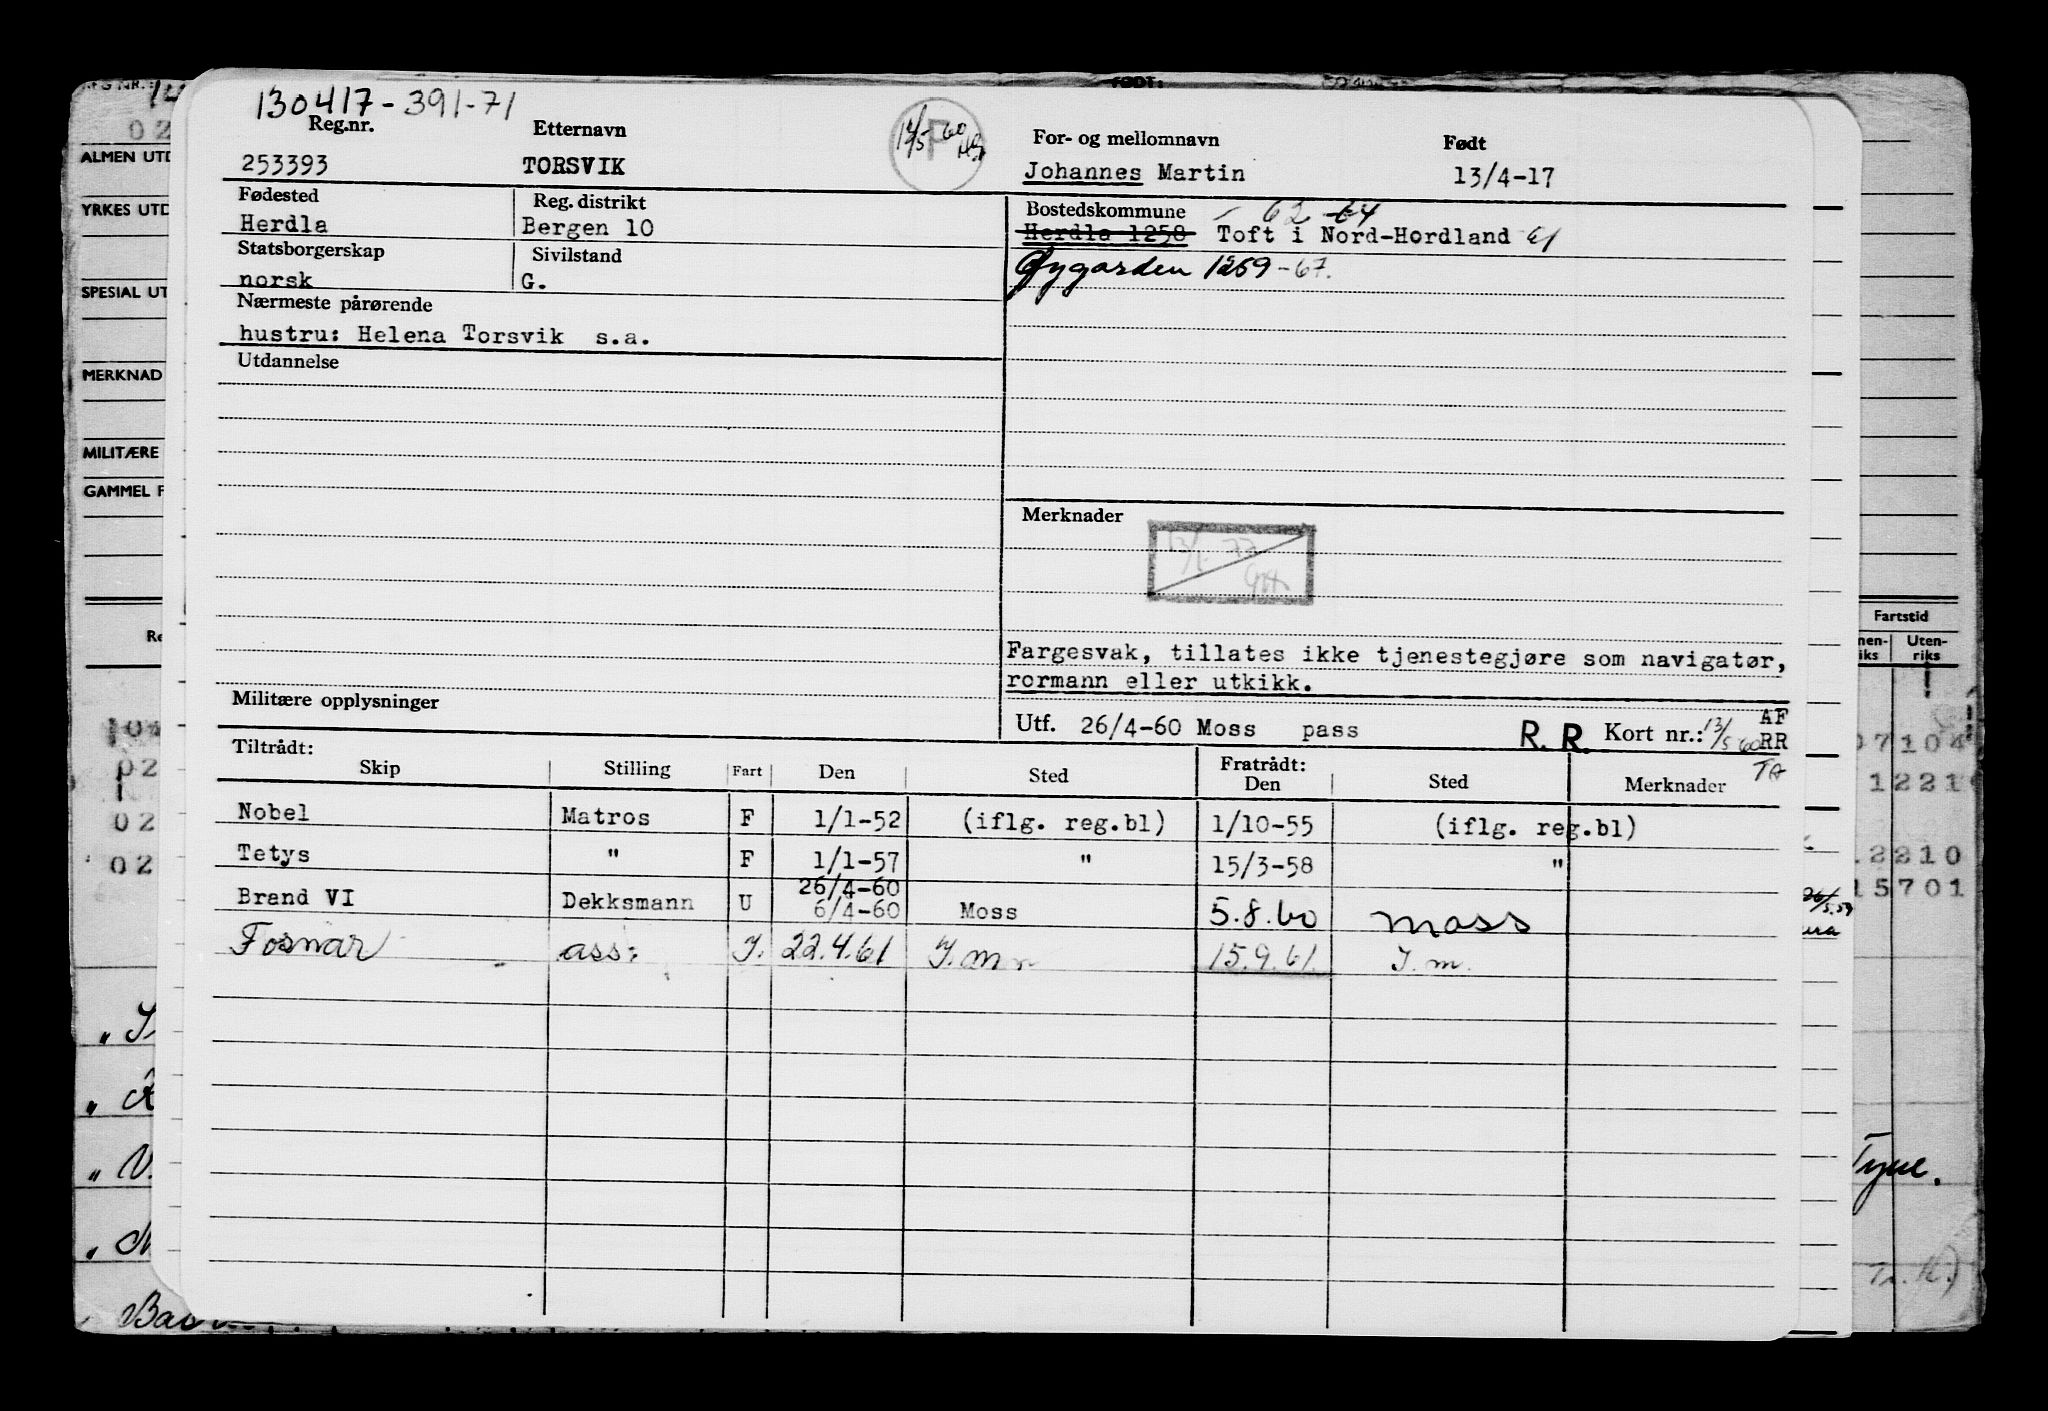 130417-391-71
Reg.nr. Etternavn For- og mellomnavn Født
253393 TORSVIK Johannes Martin 13/4-17
Fødested Reg. distrikt Bostedskommune 62 64
Herdla Bergen 10 Herdla 1258 Toft i Nord-Hordland
Statsborgerskap Sivilstand Øygarden 1259-67.
norsk G.
Nærmeste pårørende
hustru: Helena Torsvik s.a.
Utdannelse
Merknader
Fargesvak, tillates ikke tjenestegjøre som navigatør,
rormann eller utkikk.
Militære opplysninger
Utf. 26/4-60 Moss pass R. R. Kort nr.: 13/5 60 AF
RR
TA
Tiltrådt: Fratrådt:
Skip Stilling Fart Den Sted Den Sted Merknader
Nobel Matros F 1/1-52 (iflg. reg.bl) 1/10-55 (iflg. reg.bl)
Tetys " F 1/1-57 " 15/3-58 "
26/4-60
Brand VI Dekksmann U 6/4-60 Moss 5.8.60 Moss
Fosnar ass: J. 22.4.61 J.m 15.9.61. J.m.
REG NR.
FØDT:
02
ALMEN UTD
YRKES UTD
SPESIAL UT
MERKNAD
MILITÆRE
GAMMEL F
Re
Fartstid
Uten-
riks
02
02
02
07104
1221
2210
15701
Tyne.